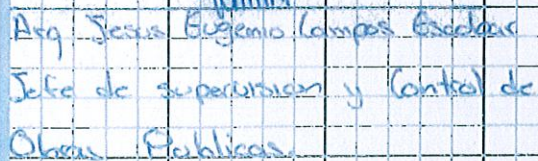 Arq Jesus Eugenio Campos Escobar
Jefe de supervision y Control de
Obras Publicas.